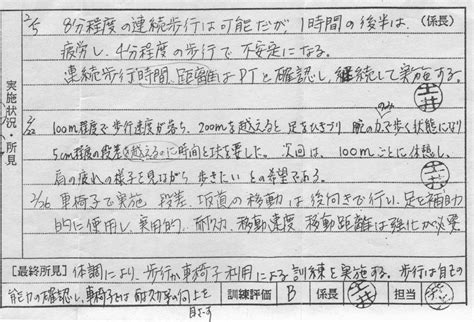 2/5 8分程度の連続歩行は可能だが、1時間の後半は、(係長)
疲労し、4分程度の歩行で不安定になる。
連続歩行時間、距離はPTと確認し、継続して実施する。
実施状況・所見
2/22 100m程度で歩行速度が落ち、200mを越えると足をひきづり 腕の力のみで歩く状態になり
5cm程度の段差を越えるのに時間と工夫を要した。次回は、100mごとに休憩し、
肩の疲れの様子を見ながら歩きたいとの希望である。
2/26 車椅子で実施 段差、坂道の移動は後向きで行い、足を補助
的に使用し、実用的、耐久力、移動速度、移動距離は強化が必要。
[最終所見] 体調により、歩行か車椅子利用による訓練を実施する。歩行は自己の
能力の確認し、車椅子では耐久力等の向上を
目ざす
訓練評価 B 係長 担当